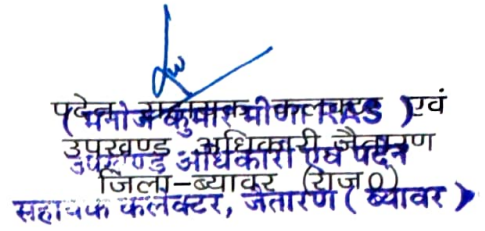 पदेन सहायक कलक्टर एवं
(मनोज कुमार मीणा RAS)
उपखण्ड अधिकारी जैतारण
उपखण्ड अधिकारी एवं पदेन
जिला-ब्यावर (राज०)
सहायक कलेक्टर, जैतारण (ब्यावर)